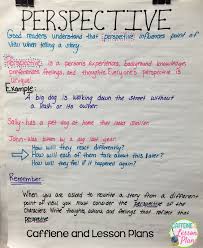 PERSPECTIVE
Good readers understand that perspective influences point of
view when telling a story.
Perspective is a person's experiences, background knowledge
preferences, feelings, and thoughts. Everyone's perspective is
unique.
Example:
A big dog is walking down the street without
a leash or his owner.
Sally- has a pet dog at home that looks similar.
John- was bitten by a dog last year.
How will they react differently?
How will each of them talk about this later?
How will they feel if it happened again?
Remember:
When you are asked to rewrite story from a different
point of view you must consider the perspective of the
characters. Write thoughts, actions, and feelings that reflect that
perspective.
Caffeine and Lesson Plans
CAFFEINE
Lesson
Plans